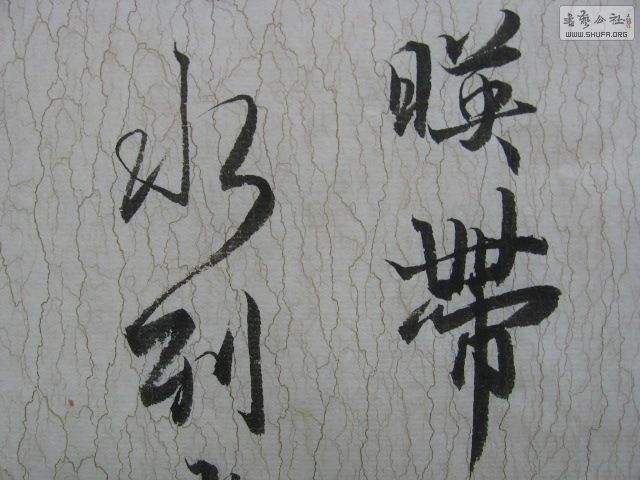 暎帶
水列
书艺公社
WWW.SHUFA.ORG